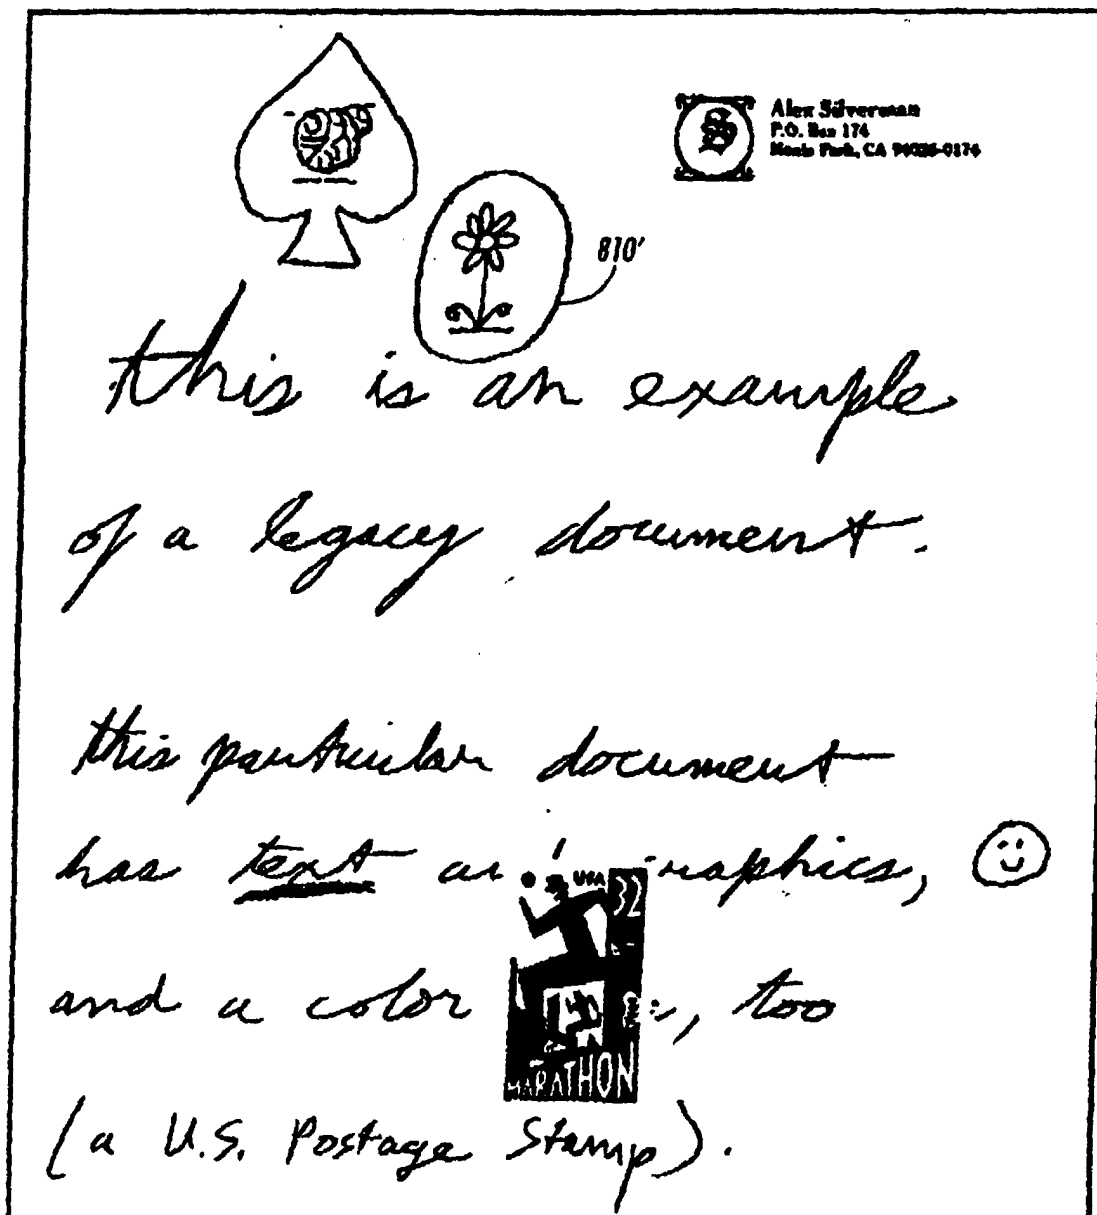 S
Alex Silverman
P.O. Box 174
Menlo Park, CA 94026-0174
810'
this is an example
of a legacy document.
this particular document
has text graphics,
USA 32
and a color , too
MARATHON
(a U.S. Postage Stamp).